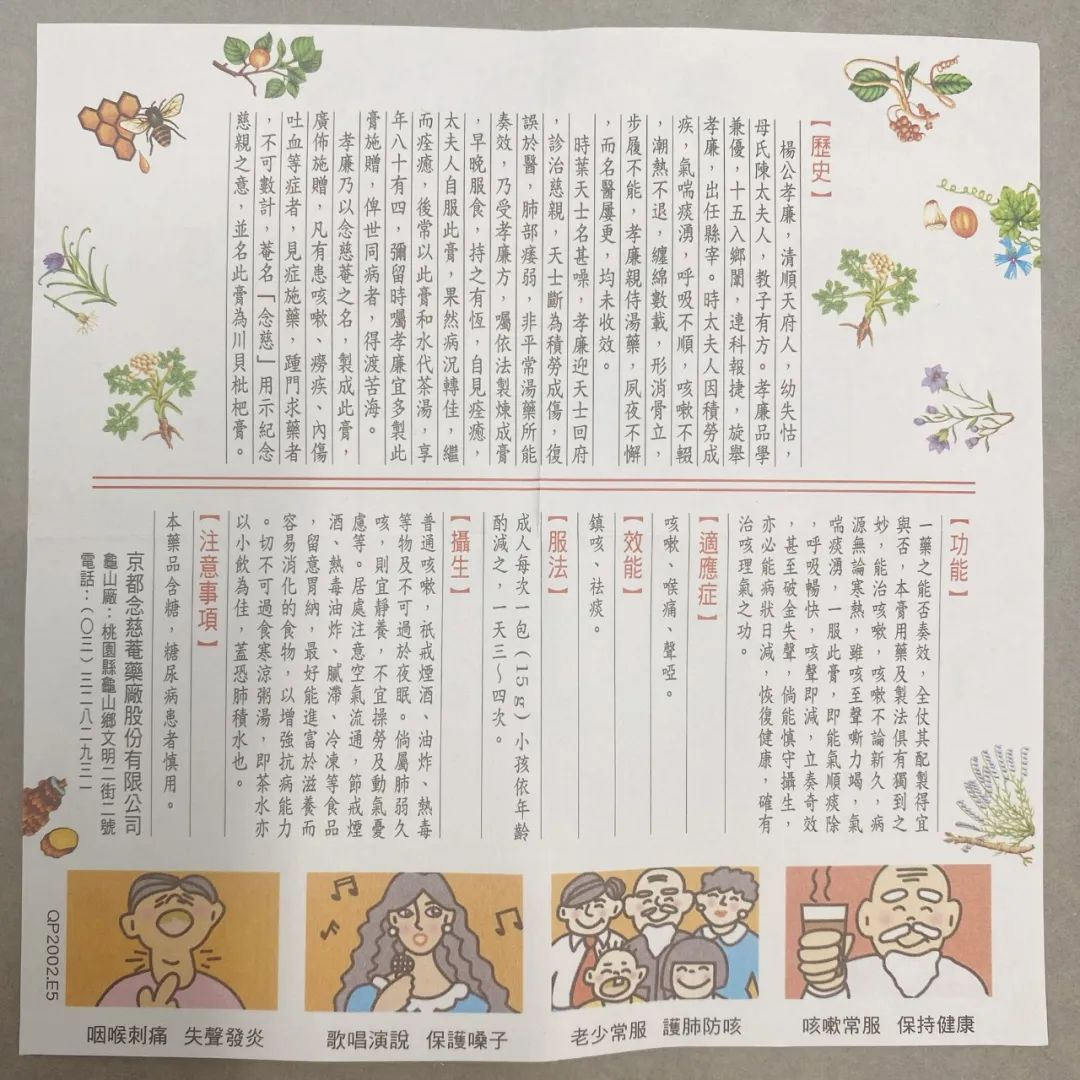 【歷史】
楊公孝廉，清順天府人，幼失怙，
母氏陳太夫人，教子有方。孝廉品學
兼優，十五入鄉闈，連科報捷，旋舉
孝廉，出任縣宰。時太夫人因積勞成
疾，氣喘痰湧，呼吸不順，咳嗽不輟
，潮熱不退，纏綿數載，形消骨立，
步履不能，孝廉親侍湯藥，夙夜不懈
，而名醫屢更，均未收效。
時葉天士名甚噪，孝廉迎天士回府
，診治慈親，天士斷為積勞成傷，復
誤於醫，肺部痿弱，非平常湯藥所能
奏效，乃受孝廉方，囑依法製煉成膏
，早晚服食，持之有恆，自見痊癒，
太夫人自服此膏，果然病況轉佳，繼
而痊癒，後常以此膏和水代茶湯，享
年八十有四，彌留時囑孝廉宜多製此
膏施贈，俾世同病者，得渡苦海。
孝廉乃以念慈菴之名，製成此膏，
廣佈施贈，凡有患咳嗽、癆疾、內傷
吐血等症者，見症施藥，踵門求藥者
，不可數計，菴名「念慈」用示紀念
慈親之意，並名此膏為川貝枇杷膏。
【功能】
一藥之能否奏效，全仗其配製得宜
與否，本膏用藥及製法俱有獨到之
妙，能治咳嗽，咳嗽不論新久，病
源無論寒熱，雖咳至聲嘶力竭，氣
喘痰湧，一服此膏，即能氣順痰除
，呼吸暢快，咳聲即減，立奏奇效
，甚至破金失聲，倘能慎守攝生，
亦必能病狀日減，恢復健康，確有
治咳理氣之功。
【適應症】
咳嗽、喉痛、聲啞。
【效能】
鎮咳、祛痰。
【服法】
成人每次一包(15g)小孩依年齡
酌減之，一天三～四次。
【攝生】
普通咳嗽，祇戒煙酒、油炸、熱毒
等物及不可過於夜眠。倘屬肺弱久
咳，則宜靜養，不宜操勞及動氣憂
慮等。居處注意空氣流通，節戒煙
酒、熱毒油炸、膩滯、冷凍等食品
，留意胃納，最好能進富於滋養而
容易消化的食物，以增強抗病能力
。切不可過食寒涼粥湯，即茶水亦
以小飲為佳，蓋恐肺積水也。
【注意事項】
本藥品含糖，糖尿病患者慎用。
京都念慈菴藥廠股份有限公司
龜山廠：桃園縣龜山鄉文明二街二號
電話：(〇三)三二八二九三一
咽喉刺痛 失聲發炎
歌唱演說 保護嗓子
老少常服 護肺防咳
咳嗽常服 保持健康
QP2002.E5